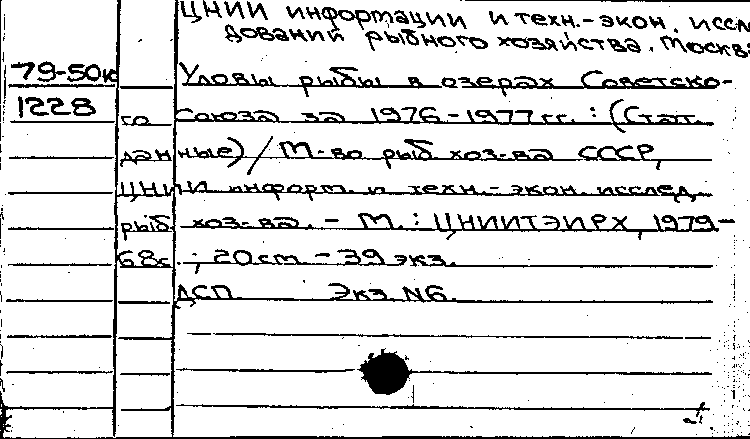 ЦНИИ информации и техн.-экон. иссле
дований рыбного хозяйства. Москва
79-50к Уловы рыбы в озерах Советско-
1228 го Союза за 1976-1977 гг. : (Стат.
данные) / М-во рыб. хоз-ва СССР,
ЦНИИ информ. и техн.-экон. исслед.
рыб. хоз-ва. - М. : ЦНИИТЭИРХ, 1979-
68с. ; 20 cm - 39 экз.
ДСП Экз. N6.